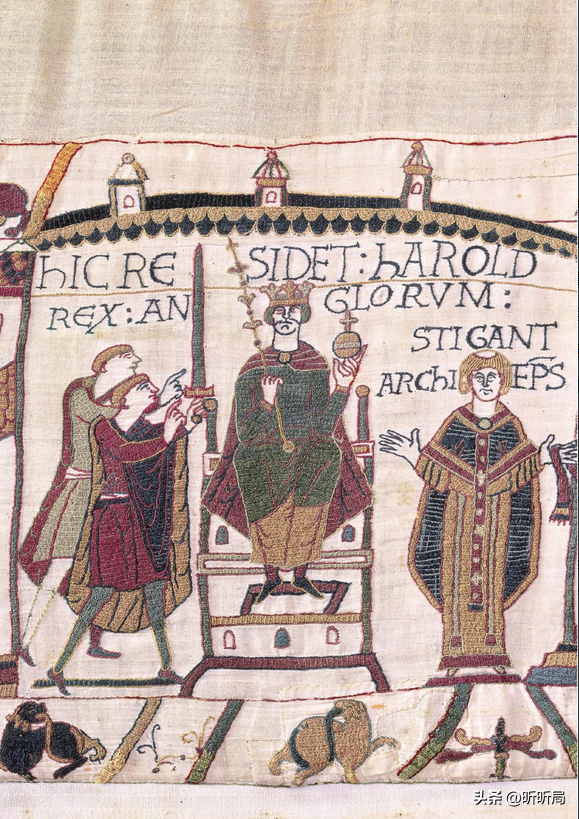 hIC RE SIDET: hAROLD
REX: AN GLORVM:
STIGANT
ARChI EP̄S
头条 @昕昕局